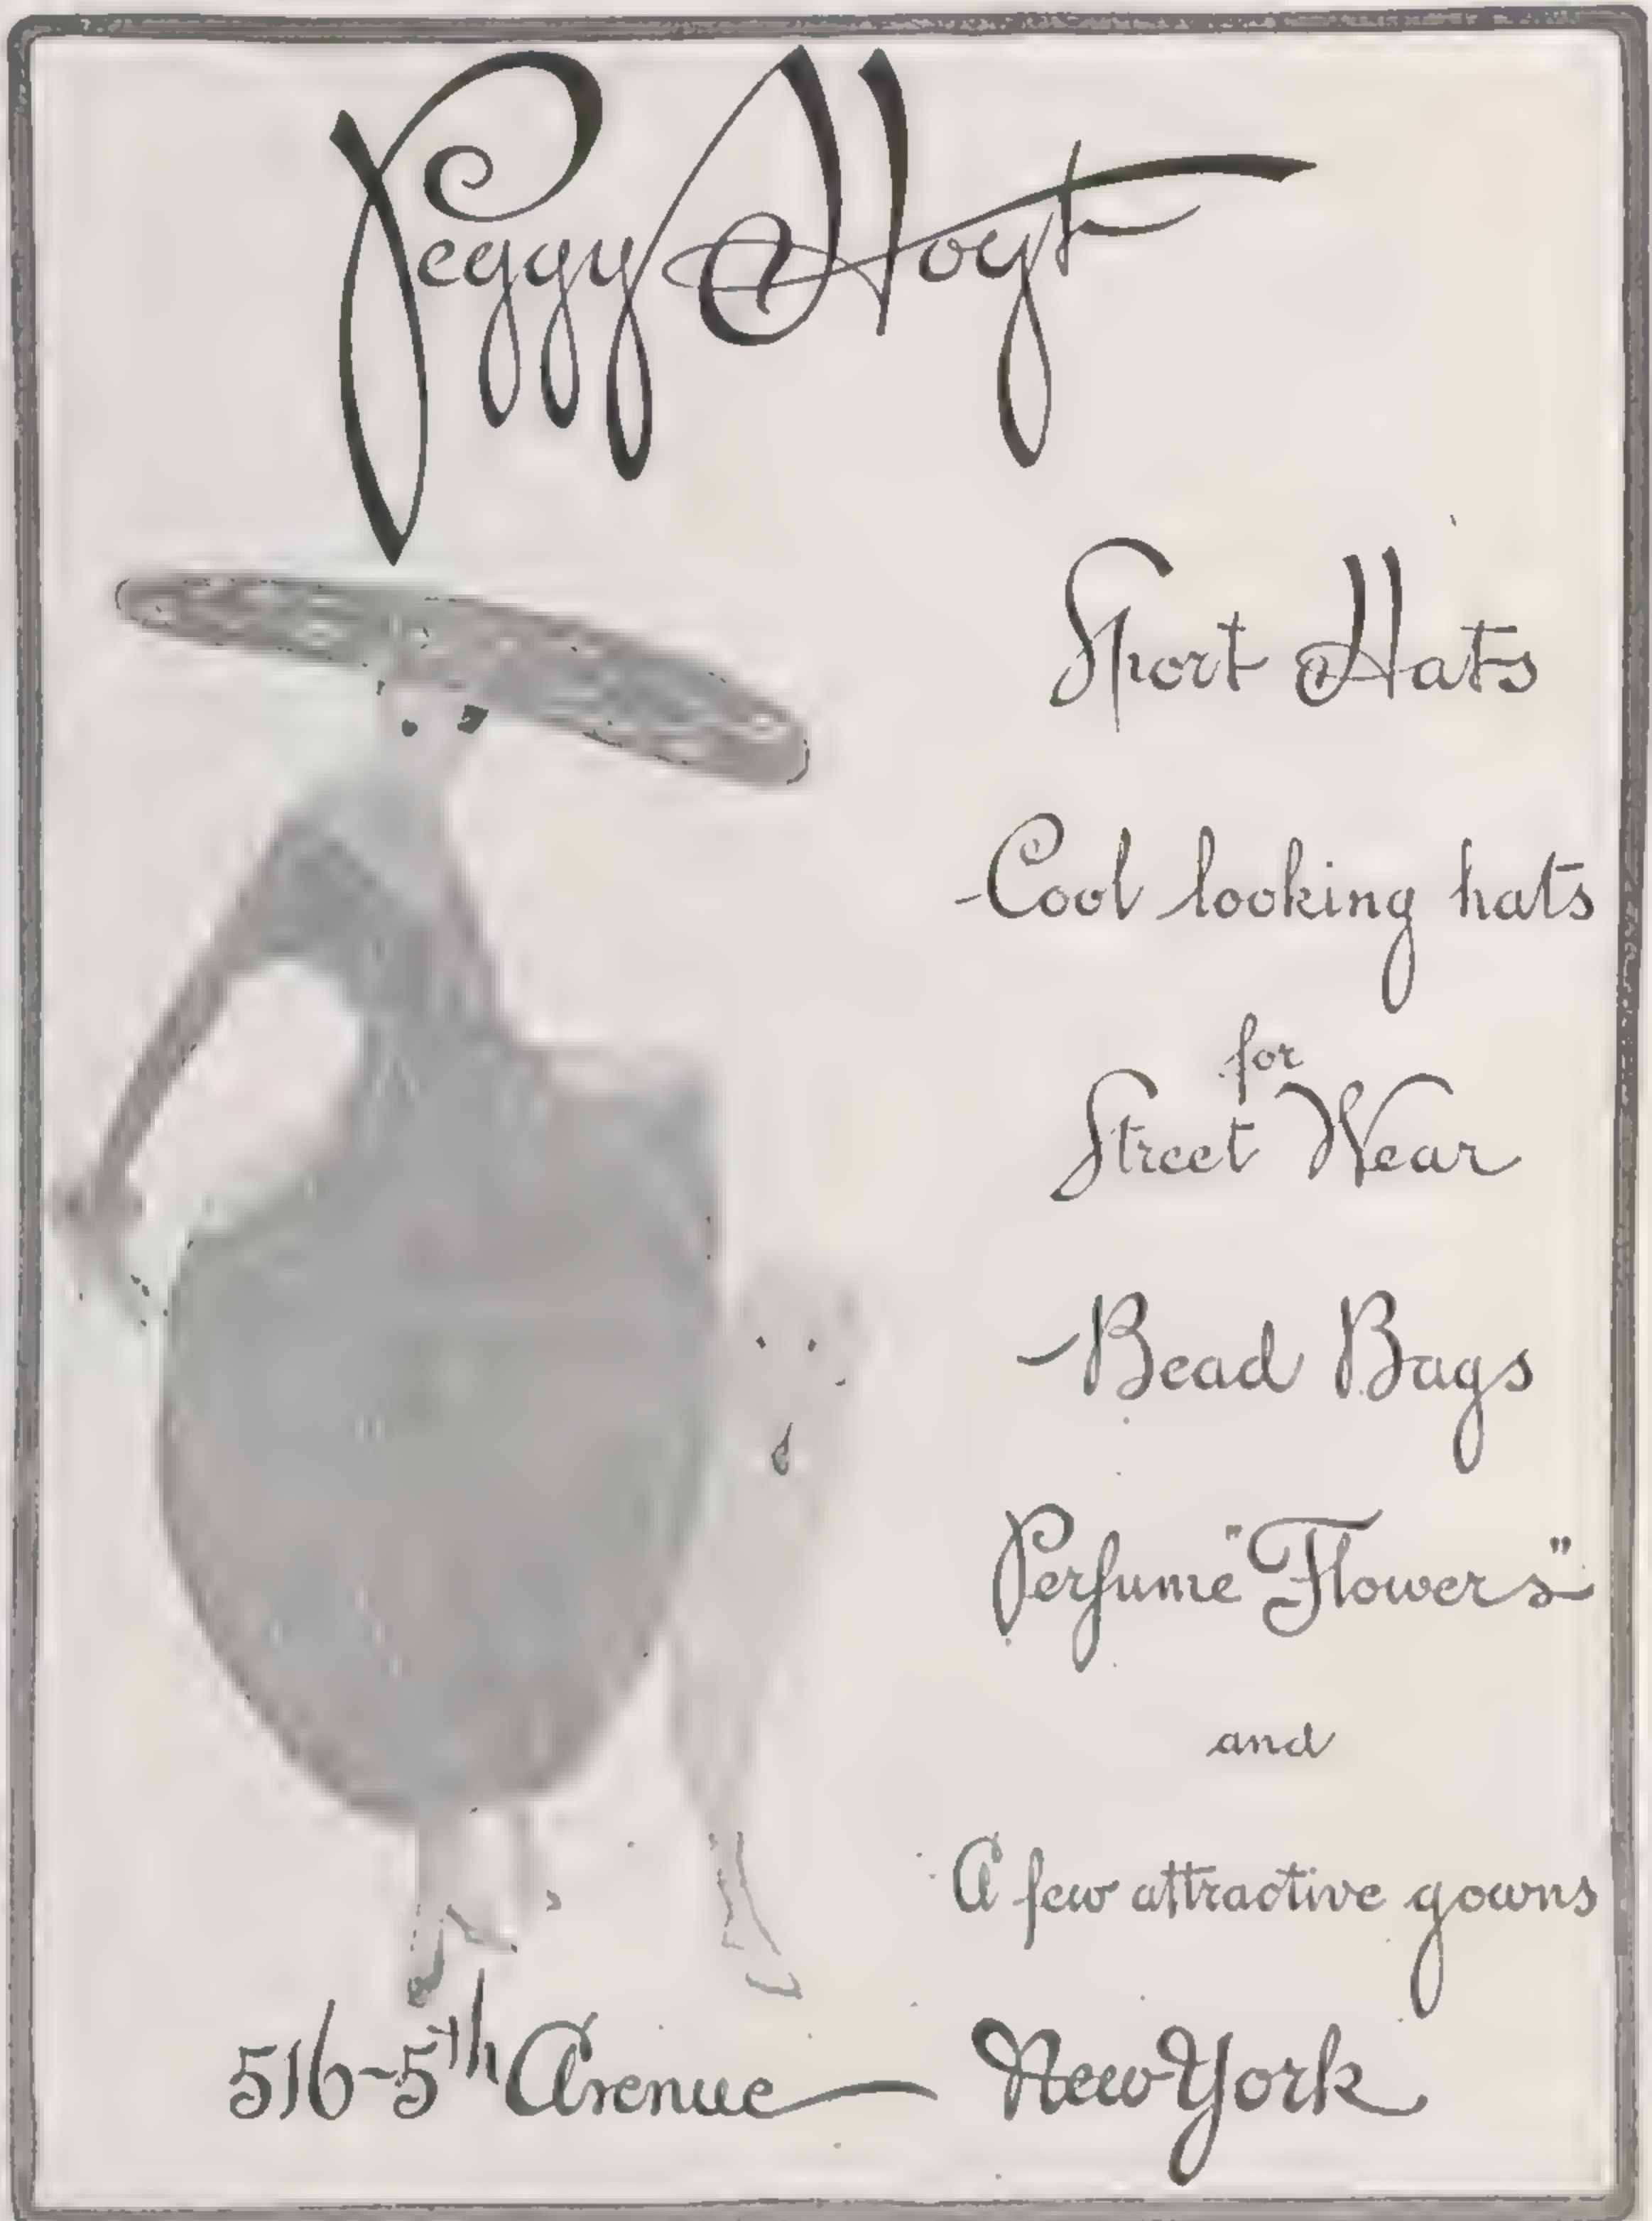 Peggy Hoyt
Sport Hats
-Cool looking hats
for
Street Wear
-Bead Bags
Perfume "Flowers"
and
A few attractive gowns
516-5th Avenue — New York